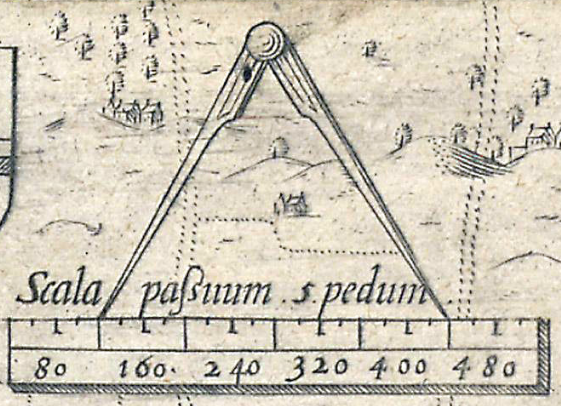 Scala paſsuum . 5 pedum
80 160. 240 320 400 480